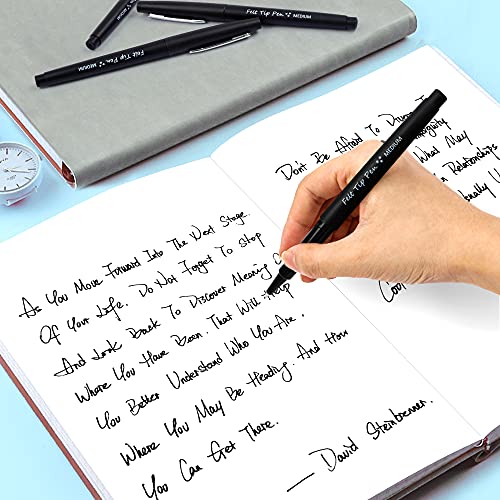 Felt Tip Pen MEDIUM
Felt Tip Pen MEDIUM
Felt Tip Pen MEDIUM
As You Move Forward Into The Next Stage
Of Your Life. Do Not Forget To Stop
And Look Back To Discover Meaning
Where You Have Been. That Will Help
You Better Understand Who You Are,
Where You May Be Heading. And How
You Can Get There.
— David Steinbrenner.
Don't Be Afraid To
What May
Relationships